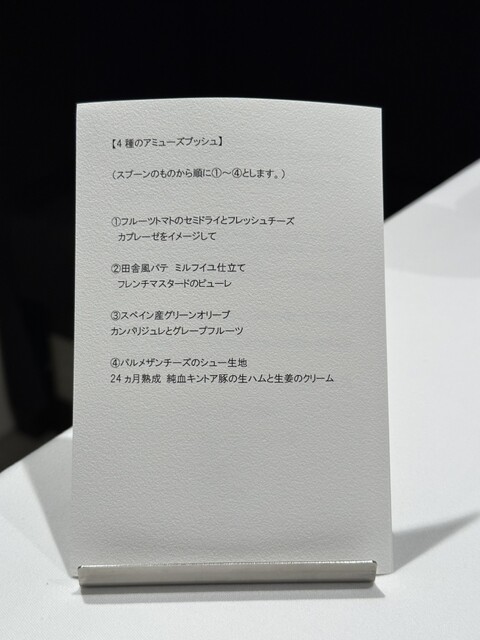 【4 種のアミューズブッシュ】
（スプーンのものから順に①～④とします。）
①フルーツトマトのセミドライとフレッシュチーズ
カプレーゼをイメージして
②田舎風パテ ミルフイユ仕立て
フレンチマスタードのピューレ
③スペイン産グリーンオリーブ
カンパリジュレとグレープフルーツ
④パルメザンチーズのシュー生地
24 ヵ月熟成 純血キントア豚の生ハムと生姜のクリーム